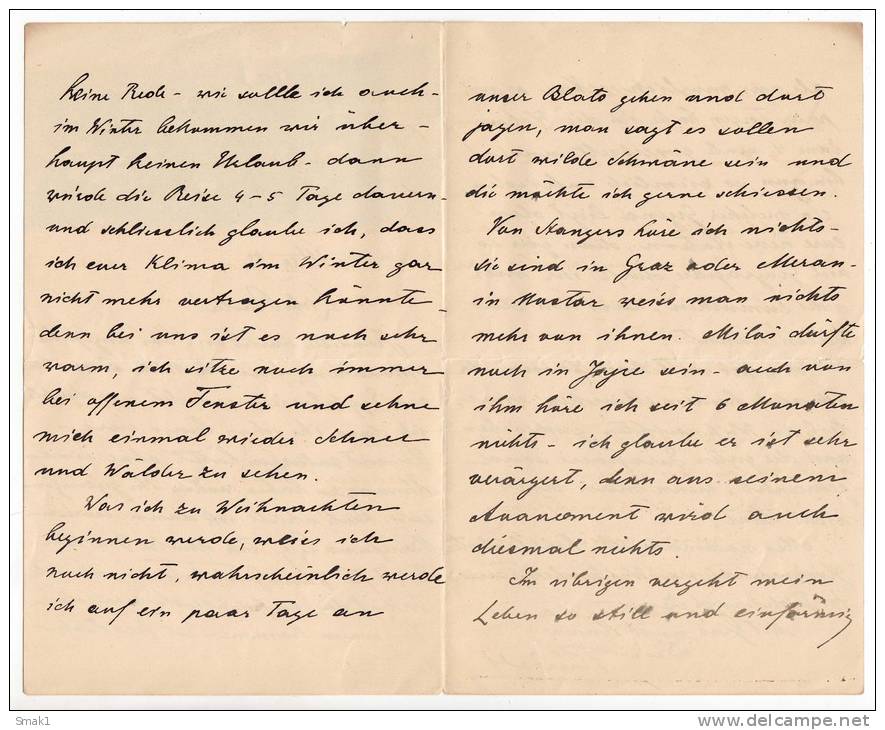 keine Rede - wie sollte ich auch -
im Winter bekommen wir über-
haupt keinen Urlaub - dann
würde die Reise 4-5 Tage dauern -
und schliesslich glaube ich, dass
ich euer Klima im Winter gar
nicht mehr vertragen könnte -
denn bei uns ist es noch sehr
warm, ich sitze noch immer
bei offenem Fenster und sehne
mich einmal wieder Schnee
und Wälder zu sehen.
Was ich zu Weihnachten
beginnen werde, weiss ich
noch nicht, wahrscheinlich werde
ich auf ein paar Tage an
unser Blato gehen und dort
jagen, man sagt es sollen
dort wilde Schwäne sein und
die möchte ich gerne schiessen.
Von Stangers höre ich nichts -
sie sind in Graz oder Meran -
in Mostar weiss man nichts
mehr von ihnen. Miloš dürfte
noch in Jajce sein - auch von
ihm höre ich seit 6 Monaten
nichts - ich glaube er ist sehr
verärgert, denn aus seinem
Avancement wird auch
diesmal nichts.
Im übrigen vergeht mein
Leben so still und einförmig
Smak1
www.delcampe.net